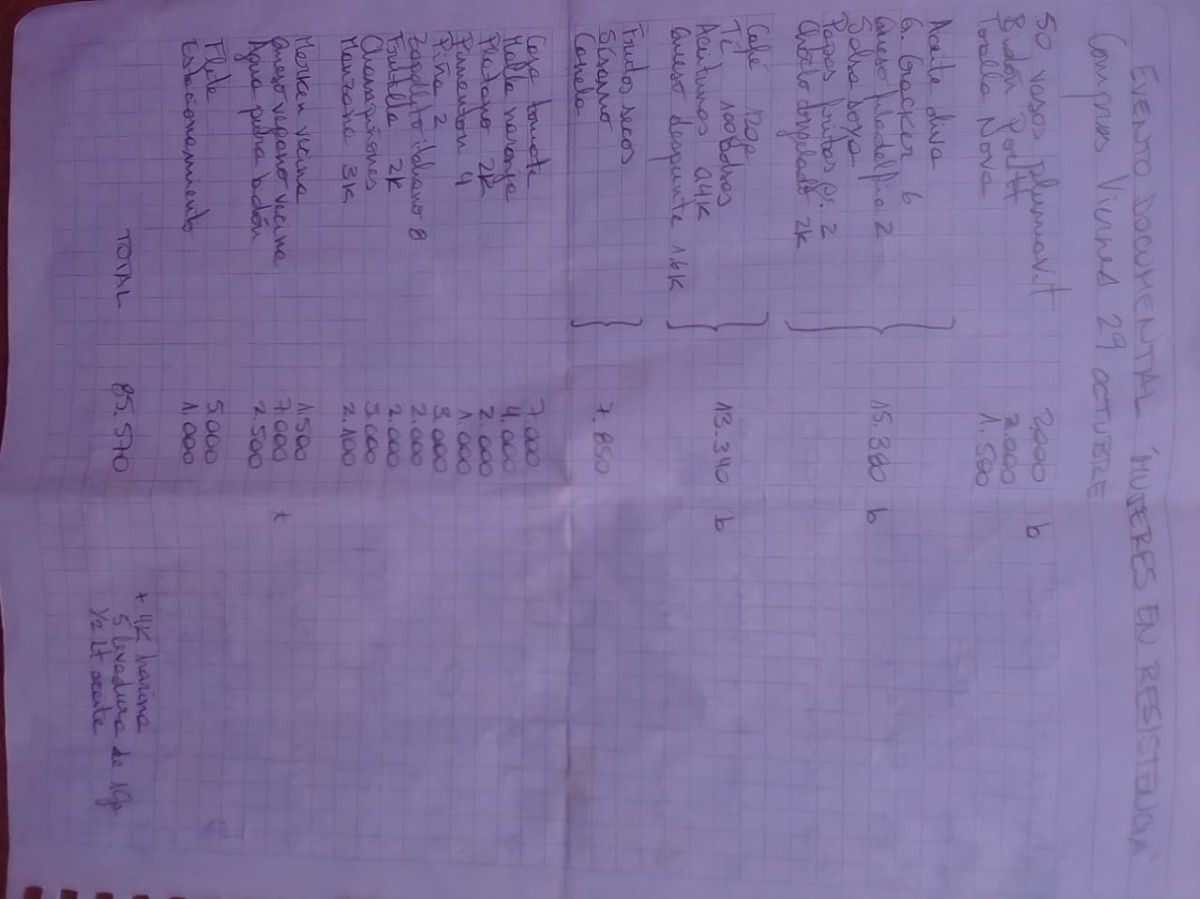 EVENTO DOCUMENTAL "MUJERES EN RESISTENCIA"
Compras Viernes 29 OCTUBRE
50 vasos plumavit 2.000 b
Bidón 2.000
Toalla Nova 1.500
Aceite oliva
G. Cracker 6
Queso filadelfia 2 15.380 b
Salsa soya
Papas fritas 2
Choclo 2K
Café
Té 100 bolsas 13.340 b
Aceitunas 0.4K
Queso despunte 1.6K
Frutos secos
Sésamo 7.850
Canela
Caja tomate 7.000
Malla naranja 4.000
Platano 2K 2.000
Pimenton 4 1.000
Piña 2 3.000
Zapallito italiano 8 2.000
Frutilla 2K 2.000
Champiñones 3.000
Manzana 3K 2.100
Merken vecina 1.500
Queso vegano vecina 7.000 +
Agua pura bidón 2.500
Flete 5.000
Estacionamiento 1.000
TOTAL 85.570
+ 4K harina
5 levadura de 10g
1/2 Lt aceite